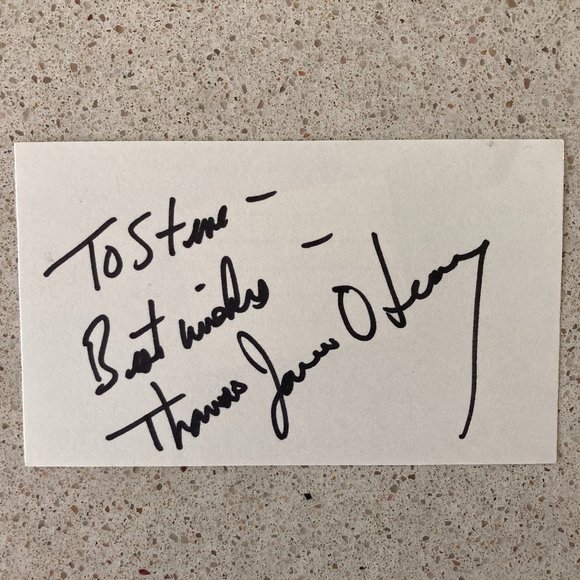 To Steve -
Best wishes -
Thomas James O'Leary